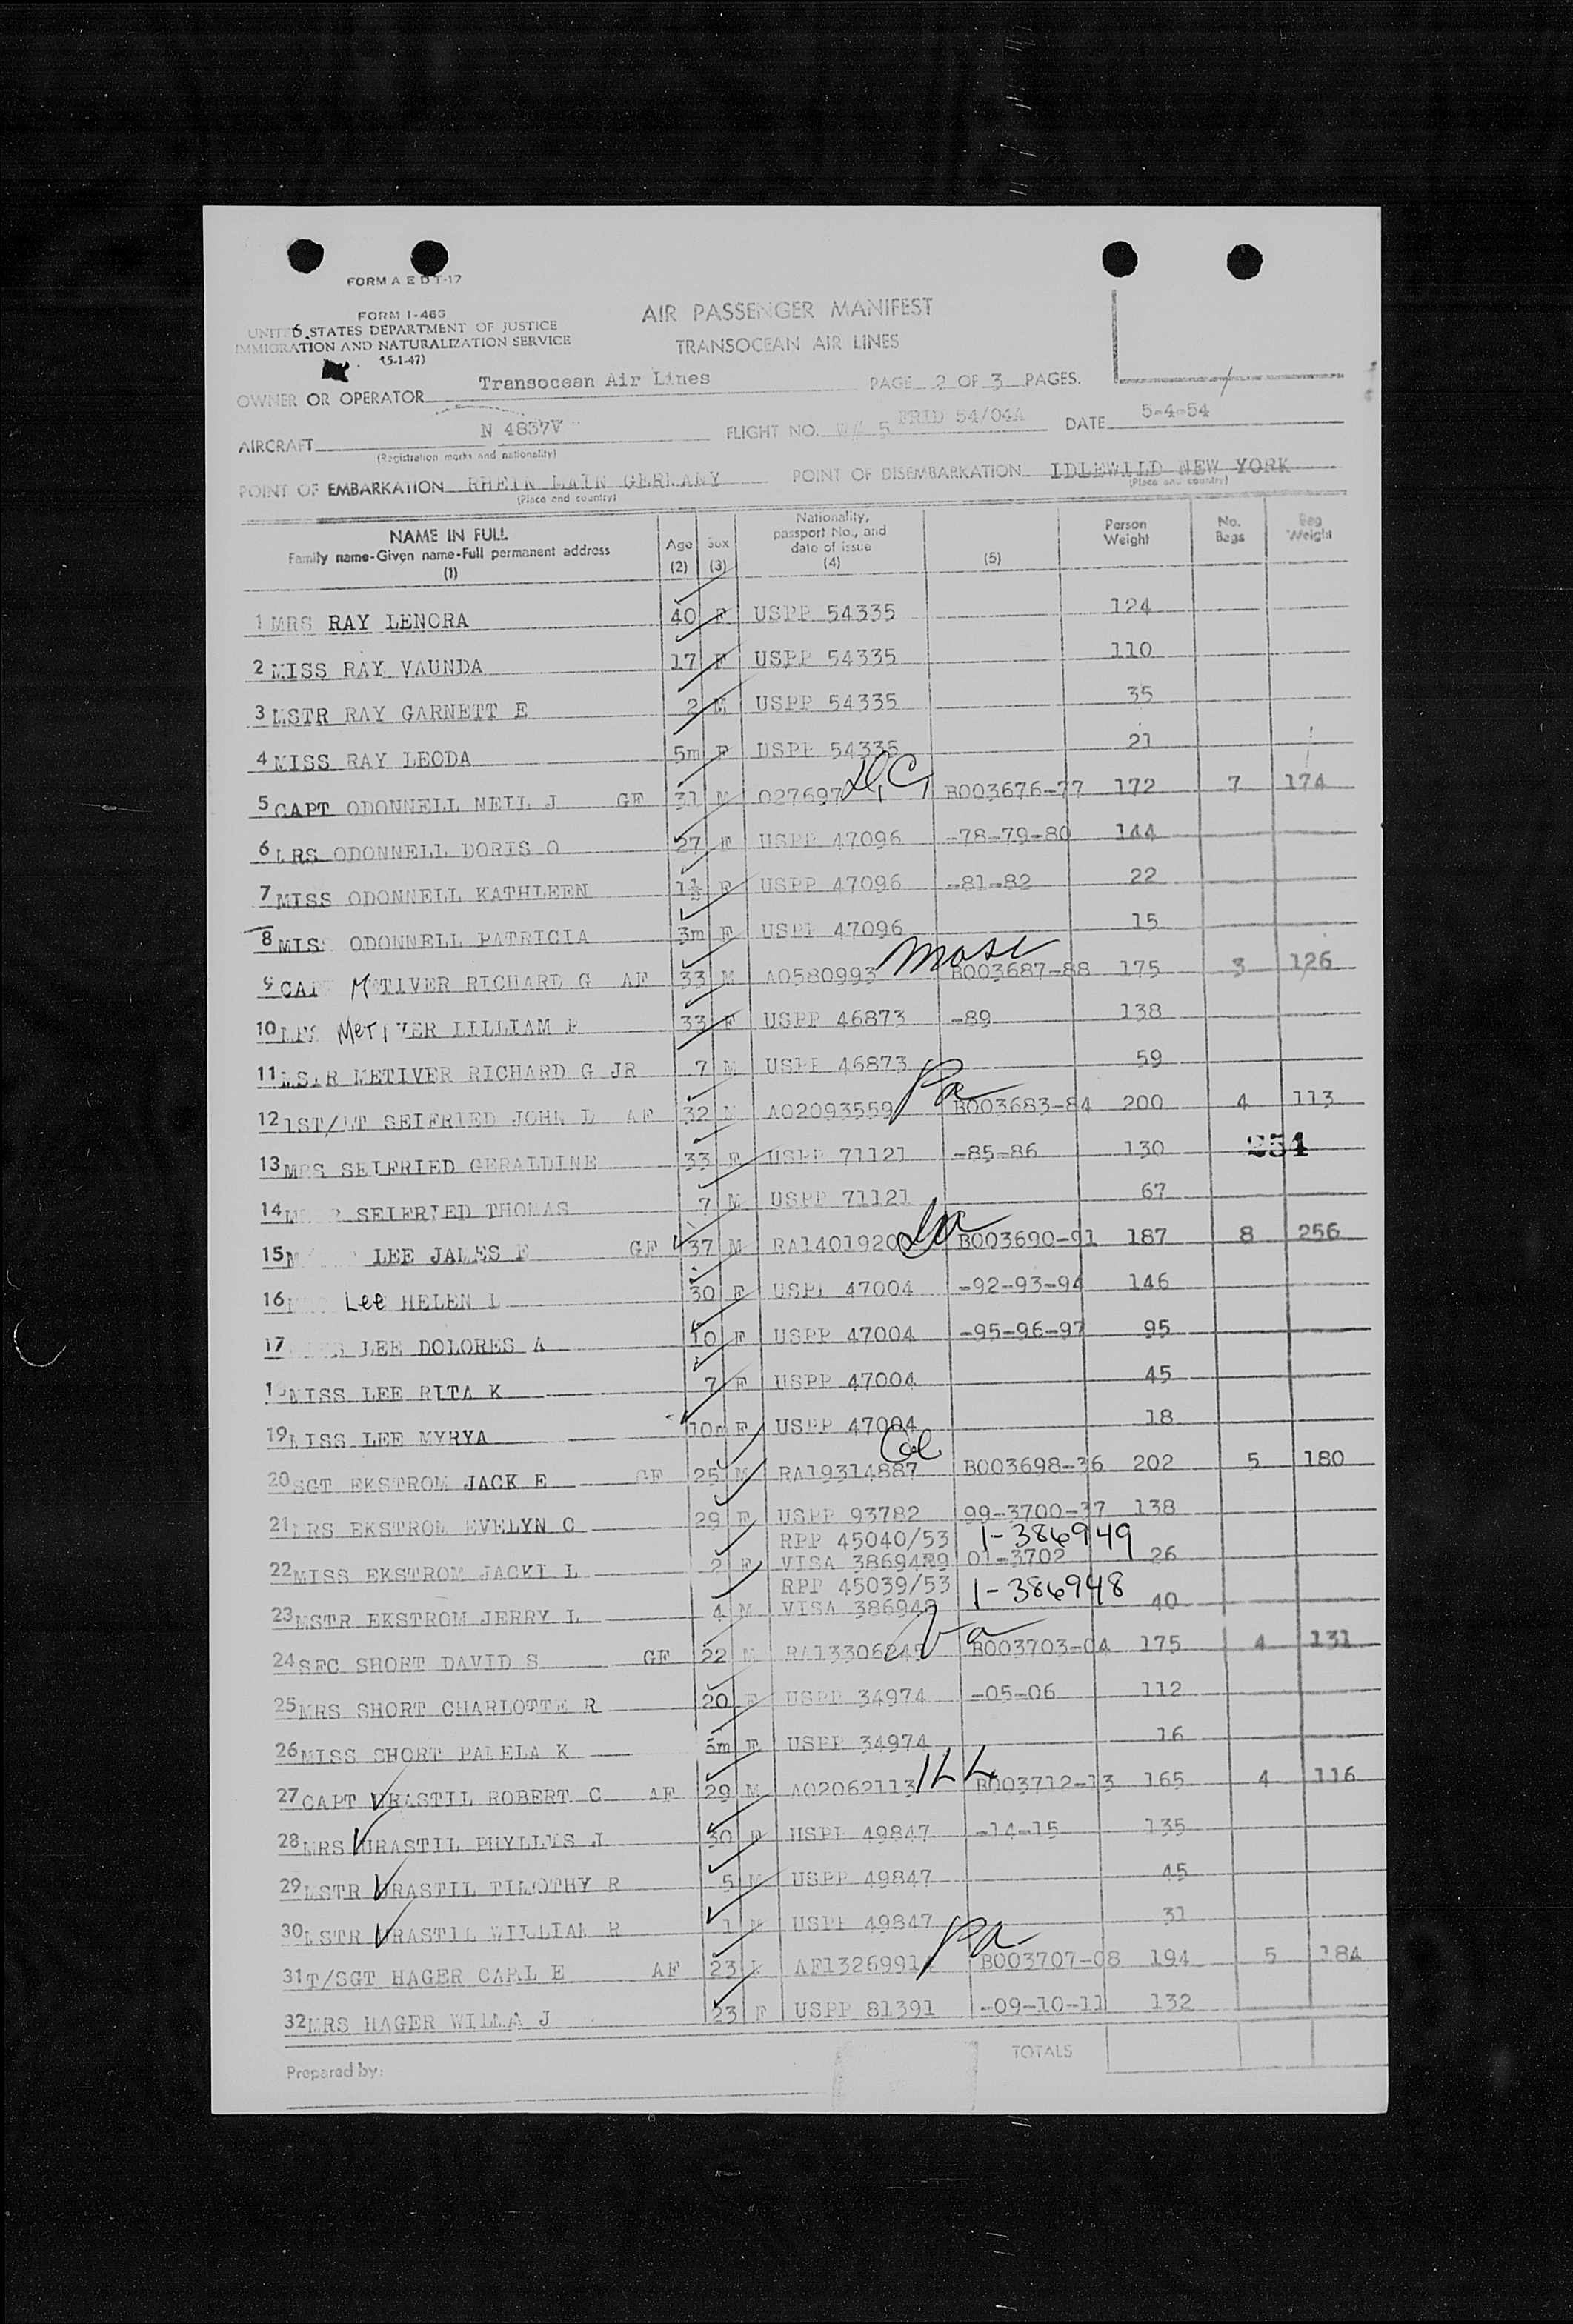 FORM A E D T-17
FORM I-466
UNITED STATES DEPARTMENT OF JUSTICE
IMMIGRATION AND NATURALIZATION SERVICE
(5-1-47)
AIR PASSENGER MANIFEST
TRANSOCEAN AIR LINES
OWNER OR OPERATOR Transocean Air Lines PAGE 2 OF 3 PAGES.
AIRCRAFT N 4837V FLIGHT NO. 5 FRID 54/04A DATE 5-4-54
(Registration marks and nationality)
POINT OF EMBARKATION RHEIN MAIN GERMANY POINT OF DISEMBARKATION IDLEWILD NEW YORK
(Place and country) (Place and country)
NAME IN FULL Family name-Given name-Full permanent address (1) Age (2) Sex (3) Nationality, passport No., and date of issue (4) (5) Person Weight No. Bags Bag Weight
1 MRS RAY LENORA 40 F USPP 54335 124
2 MISS RAY VAUNDA 17 F USPP 54335 110
3 MSTR RAY GARNETT E 2 M USPP 54335 35
4 MISS RAY LEODA 5m F USPP 54335 21
5 CAPT ODONNELL NEIL J GF 31 M 027697 D.C. B003676-77 172 7 174
6 MRS ODONNELL DORIS O 27 F USPP 47096 -78-79-80 144
7 MISS ODONNELL KATHLEEN 1½ F USPP 47096 -81-82 22
8 MISS ODONNELL PATRICIA 3m F USPP 47096 15
9 CAPT METIVER RICHARD G AF 33 M AO580993 Mass B003687-88 175 3 126
10 MRS METIVER LILLIAM P 33 F USPP 46873 -89 138
11 MSTR METIVER RICHARD G JR 7 M USPP 46873 59
12 1ST/LT SEIFRIED JOHN D AF 32 M AO2093559 Pa B003683-84 200 4 113
13 MRS SEIFRIED GERALDINE 33 F USPP 71121 -85-86 130 254
14 SEIFRIED THOMAS 7 M USPP 71121 67
15 LEE JAMES F GF 37 M RA1401920 B003690-91 187 8 256
16 Lee HELEN L 30 F USPP 47004 -92-93-94 146
17 LEE DOLORES A 10 F USPP 47004 -95-96-97 95
18 MISS LEE RITA K 7 F USPP 47004 45
19 MISS LEE MYRYA 10m F USPP 47004 18
20 SGT EKSTROM JACK E GF 25 M RA19314887 Cal B003698-36 202 5 180
21 MRS EKSTROM EVELYN C 29 F USPP 93782 99-3700-37 138
RPP 45040/53 1-386949
22 MISS EKSTROM JACKI L 2 F VISA 386949 01-3702 26
RPP 45039/53 1-386948
23 MSTR EKSTROM JERRY L 4 M VISA 386948 40
24 SFC SHORT DAVID S GF 22 M RA13306245 Va B003703-04 175 4 131
25 MRS SHORT CHARLOTTE R 20 F USPP 34974 -05-06 112
26 MISS SHORT PAMELA K 5m F USPP 34974 16
27 CAPT VRASTIL ROBERT C AF 29 M AO2062113 ILL B003712-13 165 4 116
28 MRS VRASTIL PHYLLMS J 30 F USPP 49847 -14-15 135
29 MSTR VRASTIL TIMOTHY R 5 M USPP 49847 45
30 MSTR VRASTIL WILLIAM R 1 M USPP 49847 31
31 T/SGT HAGER CARL E AF 23 AF1326991 Pa B003707-08 194 5 184
32 MRS HAGER WILMA J 23 F USPP 81391 -09-10-11 132
Prepared by: TOTALS